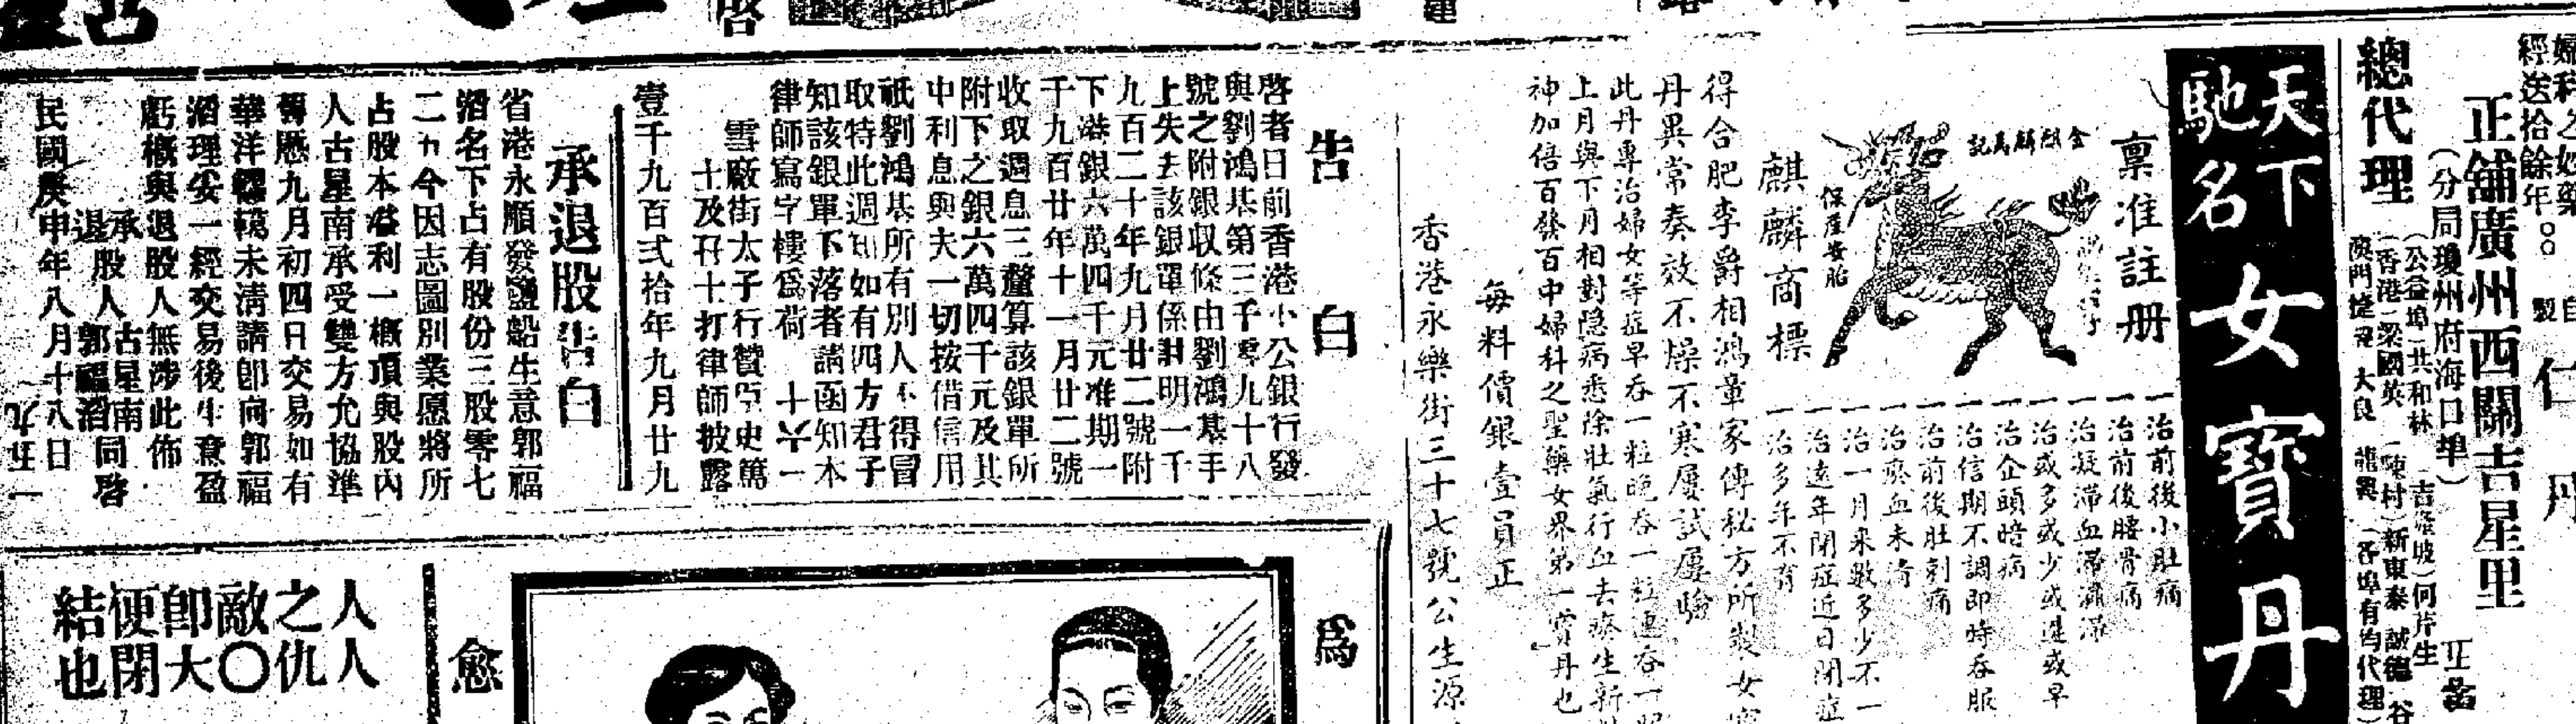 婦科之妙藥
經送拾餘年
自製
仁丹
正舖廣州西關吉星里
（分同瓊州府海口埠）
（公益埠）共和林
（香港）梁國英
（陳村）新東泰
何芹生
大良
龍興
（各埠有均代理）
總代理
天下馳名
女寶丹
稟准註冊
金麒麟爲記
保產安胎
麒麟商標
一治前後小肚痛
一治前後腰骨痛
一治凝滯血滯濕滯
一治或多或少或遲或早
一治企頭暗病
一治信期不調即時吞服
一治前後肚刺痛
一治瘀血未清
一治一月來數多少不一
一治遠年閉症近日閉症
一治多年不育
得合肥李爵相鴻章家傳秘方所製女寶
丹異常奏效不燥不寒屢試屢驗
此丹專治婦女等症早吞一粒晚吞一粒連吞一
上月與下月相對隱病悉除壯氣行血去瘀生新
神加倍百發百中婦科之聖藥女界第一寶丹也
每料價銀壹員正
香港永樂街三十七號公生源
告白
啓者日前香港小公銀行發
與劉鴻基第三千零九十八
號之附銀収條由劉鴻基手
上失去該銀單係註明一千
九百二十年九月廿二號附
下港銀六萬四千元准期一
千九百廿年十一月廿二號
收取週息三釐算該銀單所
附下之銀六萬四千元及其
中利息與夫一切按借信用
祇劉鴻基所有別人不得冒
取特此週知如有四方君子
知該銀單下落者請函知本
律師寫字樓爲荷 十六一
雪廠街太子行贊臣史篤
士及孖士打律師披露
壹千九百弍拾年九月廿九
承退股告白
省港永順發鹽船生意郭福
滔名下占有股份三股零七
二九今因志圖別業愿將所
占股本溢利一概頂與股內
人古星南承受雙方允協準
舊曆九月初四日交易如有
華洋轇轕未清請卽向郭福
滔理妥一經交易後生意盈
虧概與退股人無涉此佈
承股人 古星南
退股人 郭福滔 同啓
民國庚申年八月十八日
爲
愈
人人
之仇
敵〇
卽大
便閉
結也